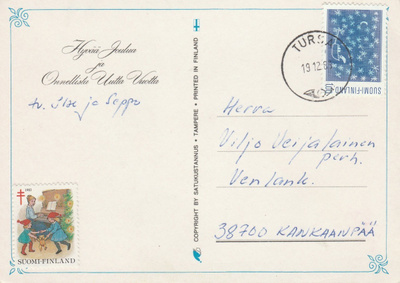 Hyvää Joulua
ja
Onnellista Uutta Vuotta
tv. Ulse ja Seppo
COPYRIGHT BY SATUKUSTANNUS • TAMPERE • PRINTED IN FINLAND
TURSA
19.12.8
SUOMI-FINLAND
Herra
Viljo Veijalainen
perh.
Venlank.
38700 KANKAANPÄÄ
SUOMI FINLAND